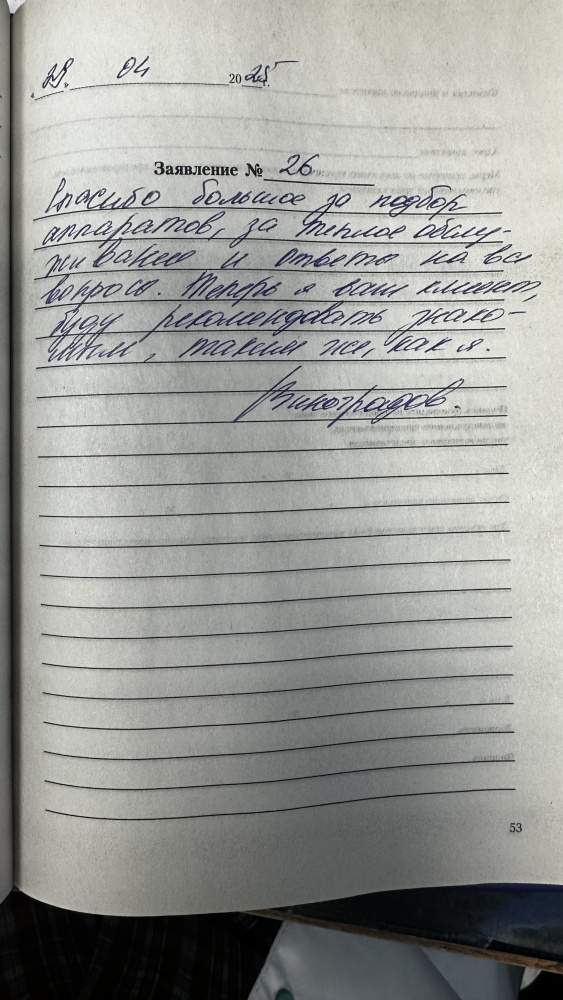 « 29 » 04 2025 г.
Заявление № 26
Спасибо большое за подбор
аппаратов, за теплое обслу-
живание и ответы на все
вопросы. Теперь я ваш клиент,
буду рекомендовать знако-
мым, таким же, как я.
Виноградов.
53